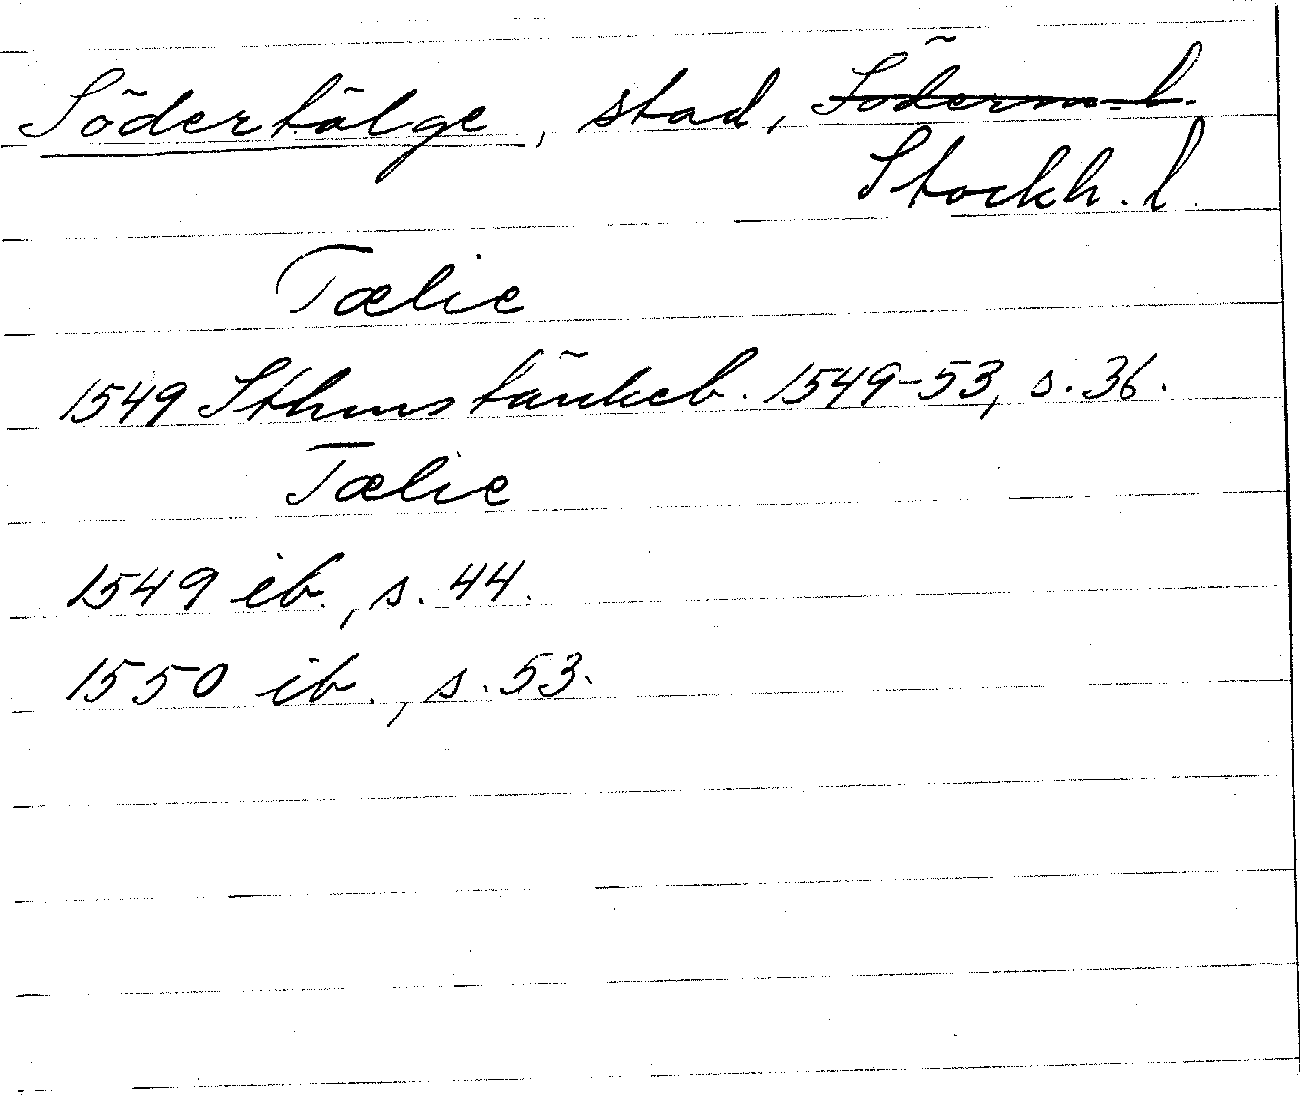 Södertälge, stad, ~~Söderm. l.~~
Stockh. l.
Tælie
1549 Sthms tänkeb. 1549-53, s. 36.
Tælie
1549 ib., s. 44.
1550 ib., s. 53.